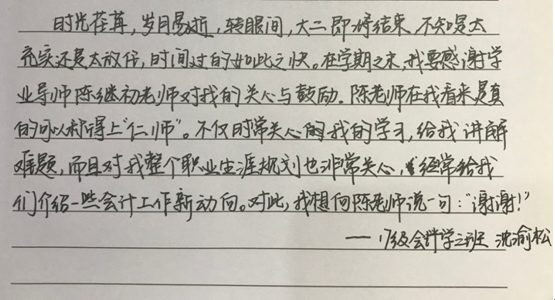 时光荏苒，岁月易逝，转眼间，大二即将结束，不知是太
充实还是太放任，时间过的如此之快。在学期之末，我要感谢学
业导师陈继初老师对我的关心与鼓励。陈老师在我看来是真
的可以称得上“仁师”。不仅时常关心我的学习，给我讲解
难题，而且对我整个职业生涯规划也非常关心，经常给我
们介绍一些会计工作新动向。对此，我想向陈老师说一句：“谢谢！”
——17级会计学三班 沈渝松